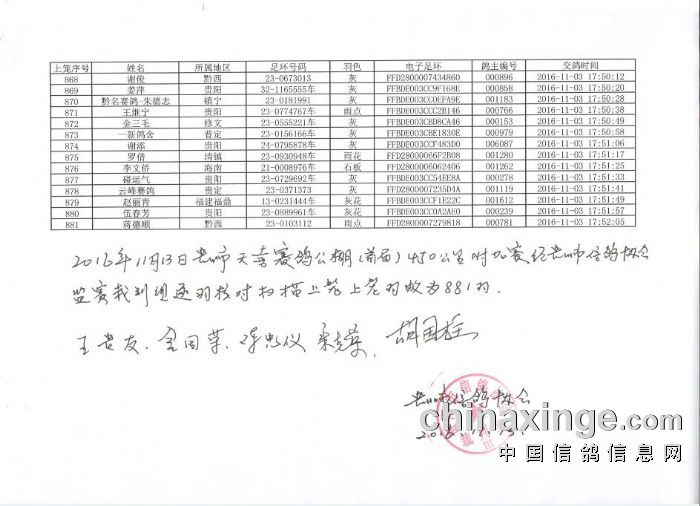 上笼序号 姓名 所属地区 足环号码 羽色 电子足环 鸽主编号 交鸽时间
868 谢俊 黔西 23-0673013 灰 FFD2800007434860 000896 2016-11-03 17:50:12
869 姜萍 贵阳 32-1165555车 灰 FFBDE003CC9F168E 000858 2016-11-03 17:50:20
870 黔名赛鸽-朱德志 镇宁 23-0181991 灰 FFBDE003CC0EFA9E 001183 2016-11-03 17:50:28
871 王继宁 贵阳 23-0774767车 雨点 FFBDE003CCC2B146 000766 2016-11-03 17:50:38
872 金三毛 修文 23-0555221车 灰 FFBDE003CBD6CA46 000153 2016-11-03 17:50:49
873 一新鸽舍 普定 23-0156166车 灰 FFBDE003CBE1830E 000979 2016-11-03 17:50:58
874 谢添 贵阳 24-0795878车 灰 FFBDE003CCF483D0 006087 2016-11-03 17:51:06
875 罗倩 清镇 23-0930948车 雨花 FFD28000066F2B08 001280 2016-11-03 17:51:17
876 李文侨 海南 21-0008976车 石板 FFD2800006062406 001262 2016-11-03 17:51:25
877 碰运气 贵阳 23-0729692车 灰 FFBDE003CC54EE8A 000278 2016-11-03 17:51:33
878 云峰赛鸽 贵定 23-0371373 灰 FFD28000007235D4A 001119 2016-11-03 17:51:41
879 赵丽青 福建福鼎 13-0231444车 灰花 FFBDE003CCF1E22C 001612 2016-11-03 17:51:49
880 伍春芳 贵阳 23-0889961车 灰花 FFBDE003CC0A2AE0 000239 2016-11-03 17:51:57
881 蒋德顺 黔西 23-0103112 雨点 FFD2800007279818 000781 2016-11-03 17:52:05
2016年11月13日贵州市天奇赛鸽公棚(首届)450公里附加赛经贵州市信鸽协会
监赛裁判组逐羽核对扫描上笼上笼羽数为881羽.
王贵友、金国 胡国栓
贵州市信鸽协会
2016.11.13.
chinaxinge.com
中国信鸽信息网